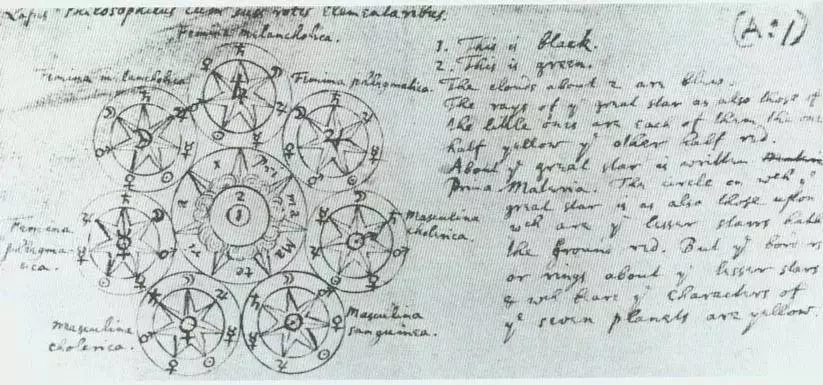 Lapis Philosophicus cum suis rotis elementaribus.
(A:1)
Femina melancholica.
Femina melancholica
Femina phlegmatica.
Femina
phlegma-
tica.
Masculina
cholerica.
Masculina
cholerica.
Masculina
sanguinea.
Pri
ma
Ma
te
ri
a
2
1
1. This is black.
2. This is green.
The clouds about 2 are blue.
The rays of yᵉ great star as also those of
the little ones are each of them the one
half yellow yᵉ other half red.
About yᵉ great star is written
Prima Materia. The circle on wᶜʰ yᵉ
great star is as also those upon
wᶜʰ are yᵉ lesser starrs hath
the ground red. But yᵉ
or rings about yᵉ lesser stars
& wᶜʰ beare yᵉ characters of
yᵉ seven planets are yellow.